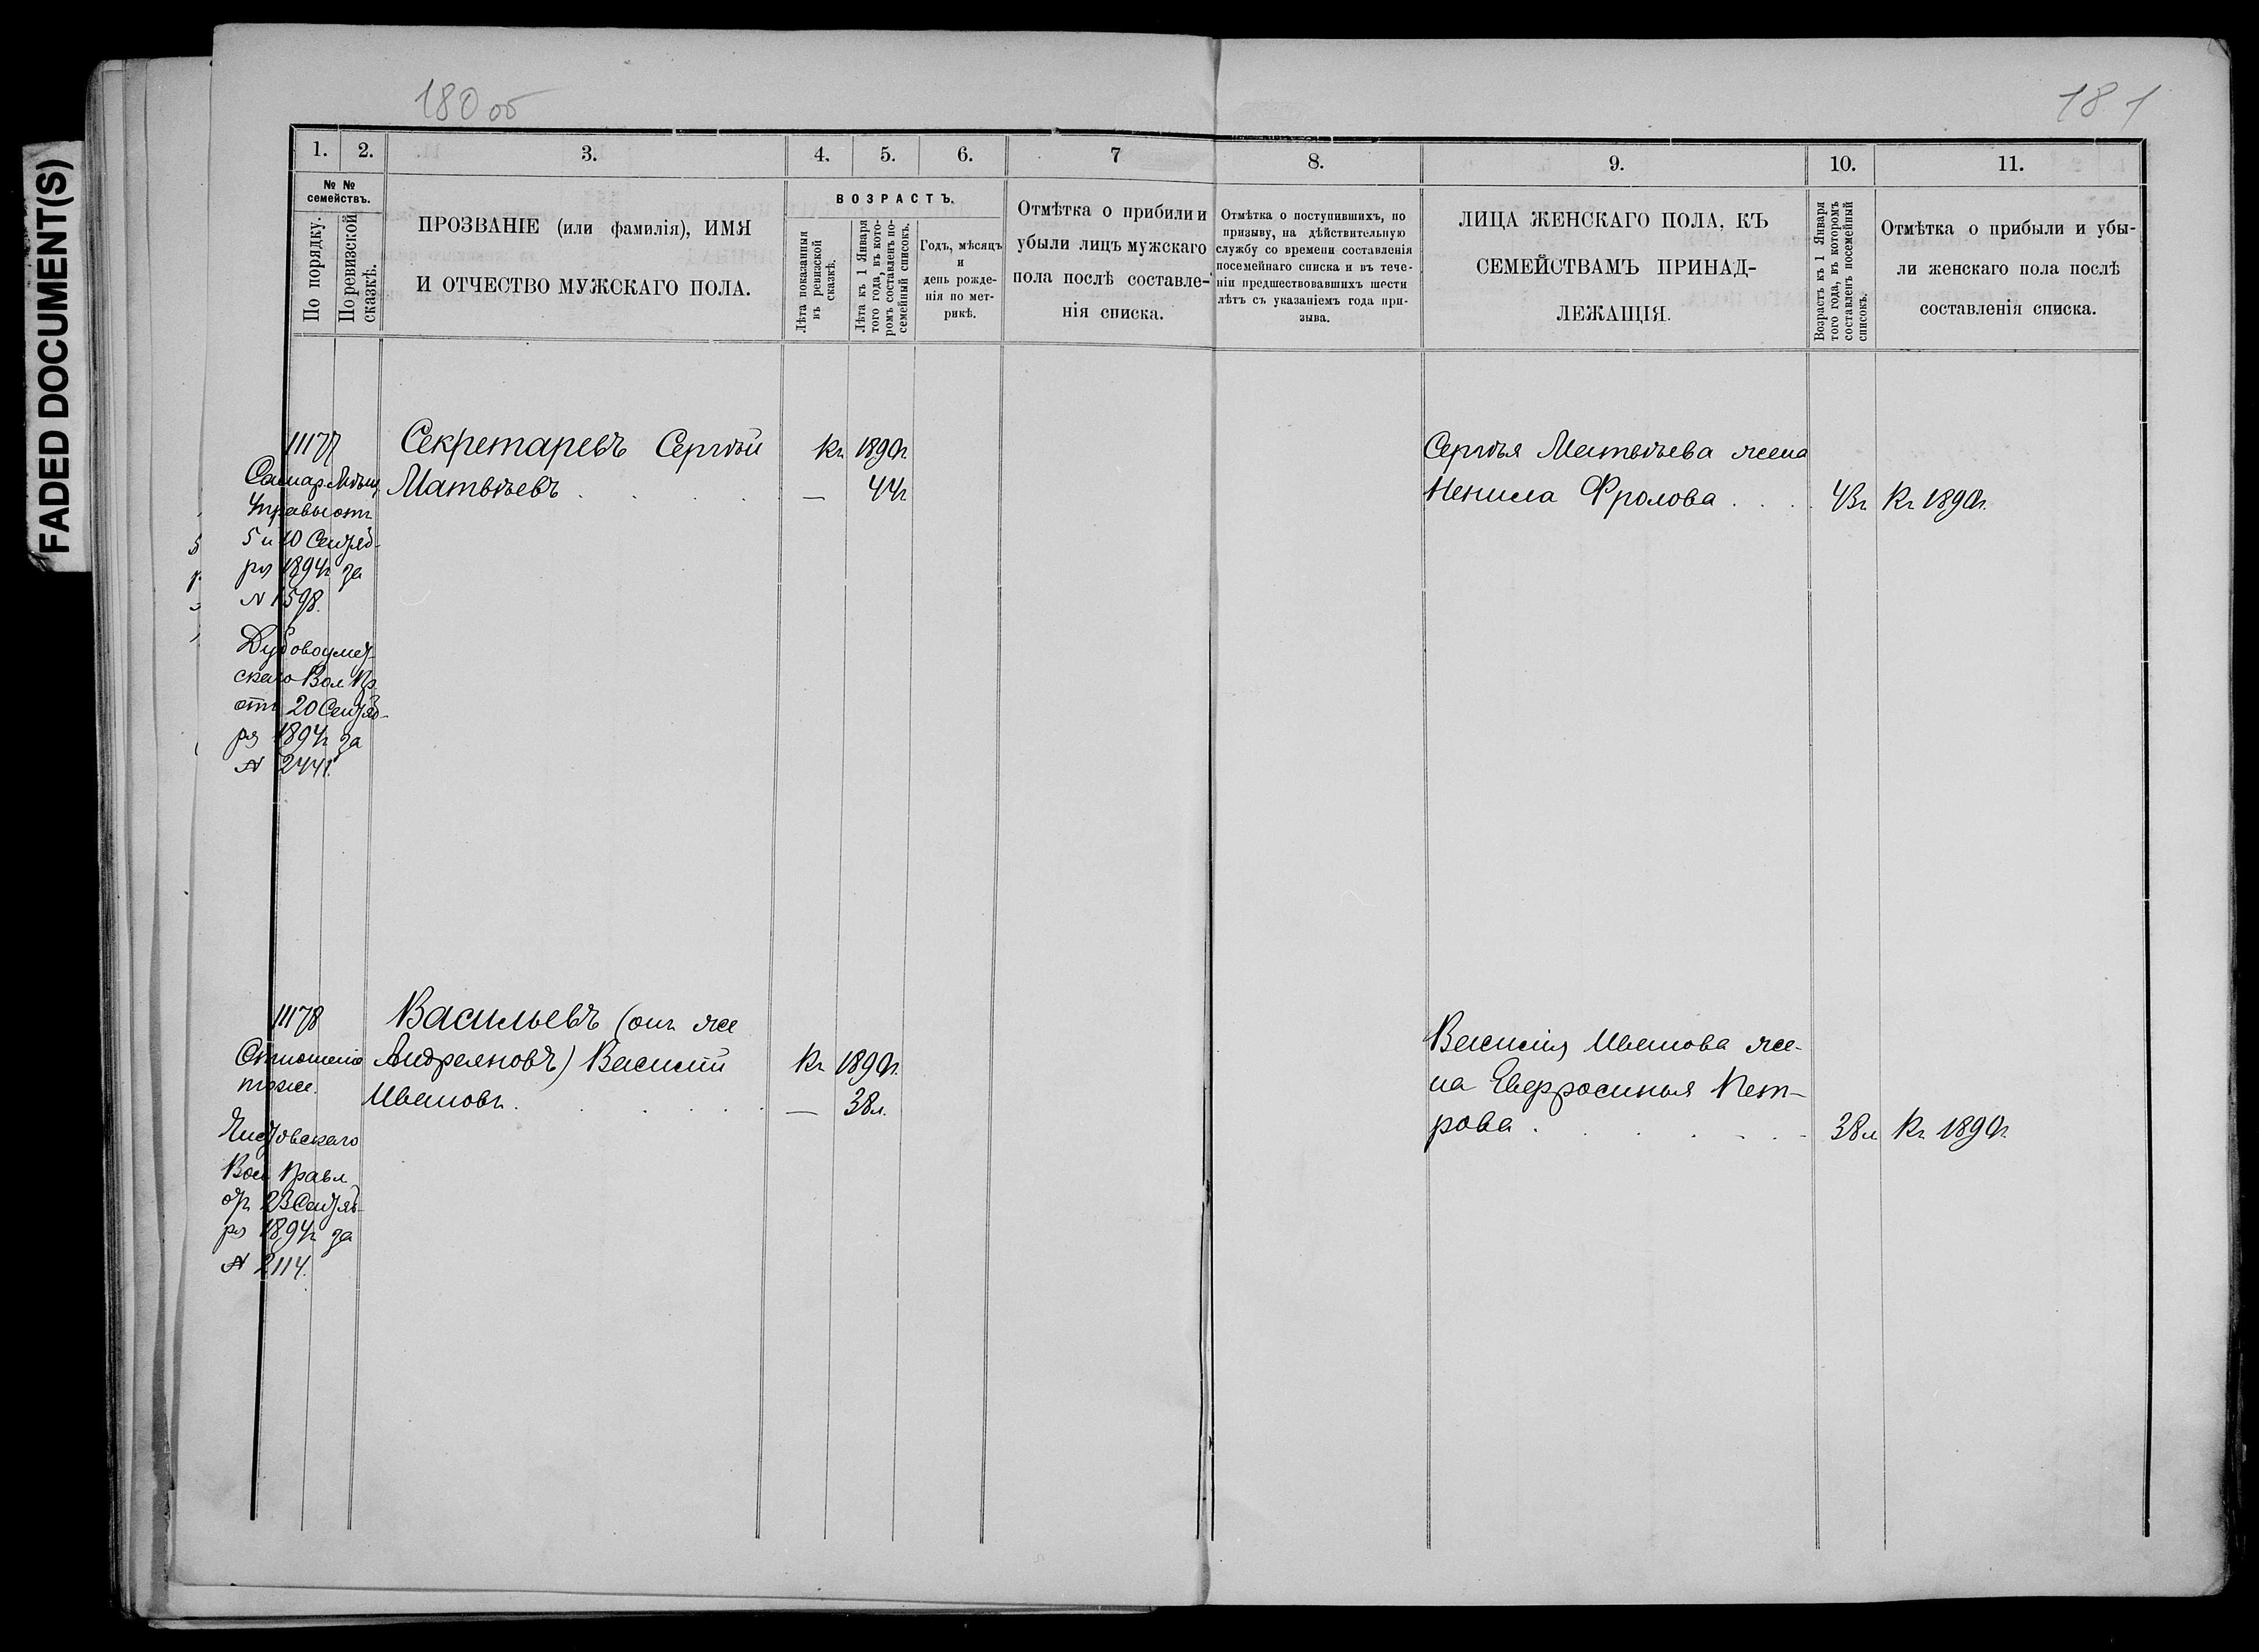 FADED DOCUMENT(S)
180 об
181
1. 2. 3. 4. 5. 6. 7 8. 9. 10. 11.
№ №
семействъ.
По порядку.
По ревизской
сказкѣ.
ПРОЗВАНІЕ (или фамилія), ИМЯ
И ОТЧЕСТВО МУЖСКАГО ПОЛА.
ВОЗРАСТЪ.
Лѣта показанныя
въ ревизской
сказкѣ.
Лѣта къ 1 Января
того года, въ кото-
ромъ составленъ по-
семейный списокъ.
Годъ, мѣсяцъ
и
день рожде-
нія по мет-
рикѣ.
Отмѣтка о прибили и
убыли лицъ мужскаго
пола послѣ составле-
нія списка.
Отмѣтка о поступившихъ, по
призыву, на дѣйствительную
службу со времени составленія
посемейнаго списка и въ тече-
ніи предшествовавшихъ шести
лѣтъ съ указаніемъ года при-
зыва.
ЛИЦА ЖЕНСКАГО ПОЛА, КЪ
СЕМЕЙСТВАМЪ ПРИНАД-
ЛЕЖАЩІЯ.
Возрастъ къ 1 Января
того года, въ которомъ
составленъ посемейный
списокъ.
Отмѣтка о прибыли и убы-
ли женскаго пола послѣ
составленія списка.
11177
Самар. Мѣщ.
Управы отъ
5 и 10 Сентяб-
ря 1894г за
N 1598.
Дубовоумет-
скаго Вол Пр.
отъ 20 Сентяб-
ря 1894г за
N 2441.
Секретаревъ Сергѣй
Матвѣевъ
Къ 1890г.
— 44г
Сергѣя Матвѣева жена
Ненила Фролова
43г Къ 1890г.
11178
Отношеніе
тоже.
Вол Правл
отъ 23 Сентяб-
ря 1894г за
N 2114.
Васильевъ (онъ же
Андреяновъ) Василій
Ивановъ.
Къ 1890г.
— 38л.
Василія Иванова же-
на Евфросинья Пет-
рова
38л Къ 1890г.